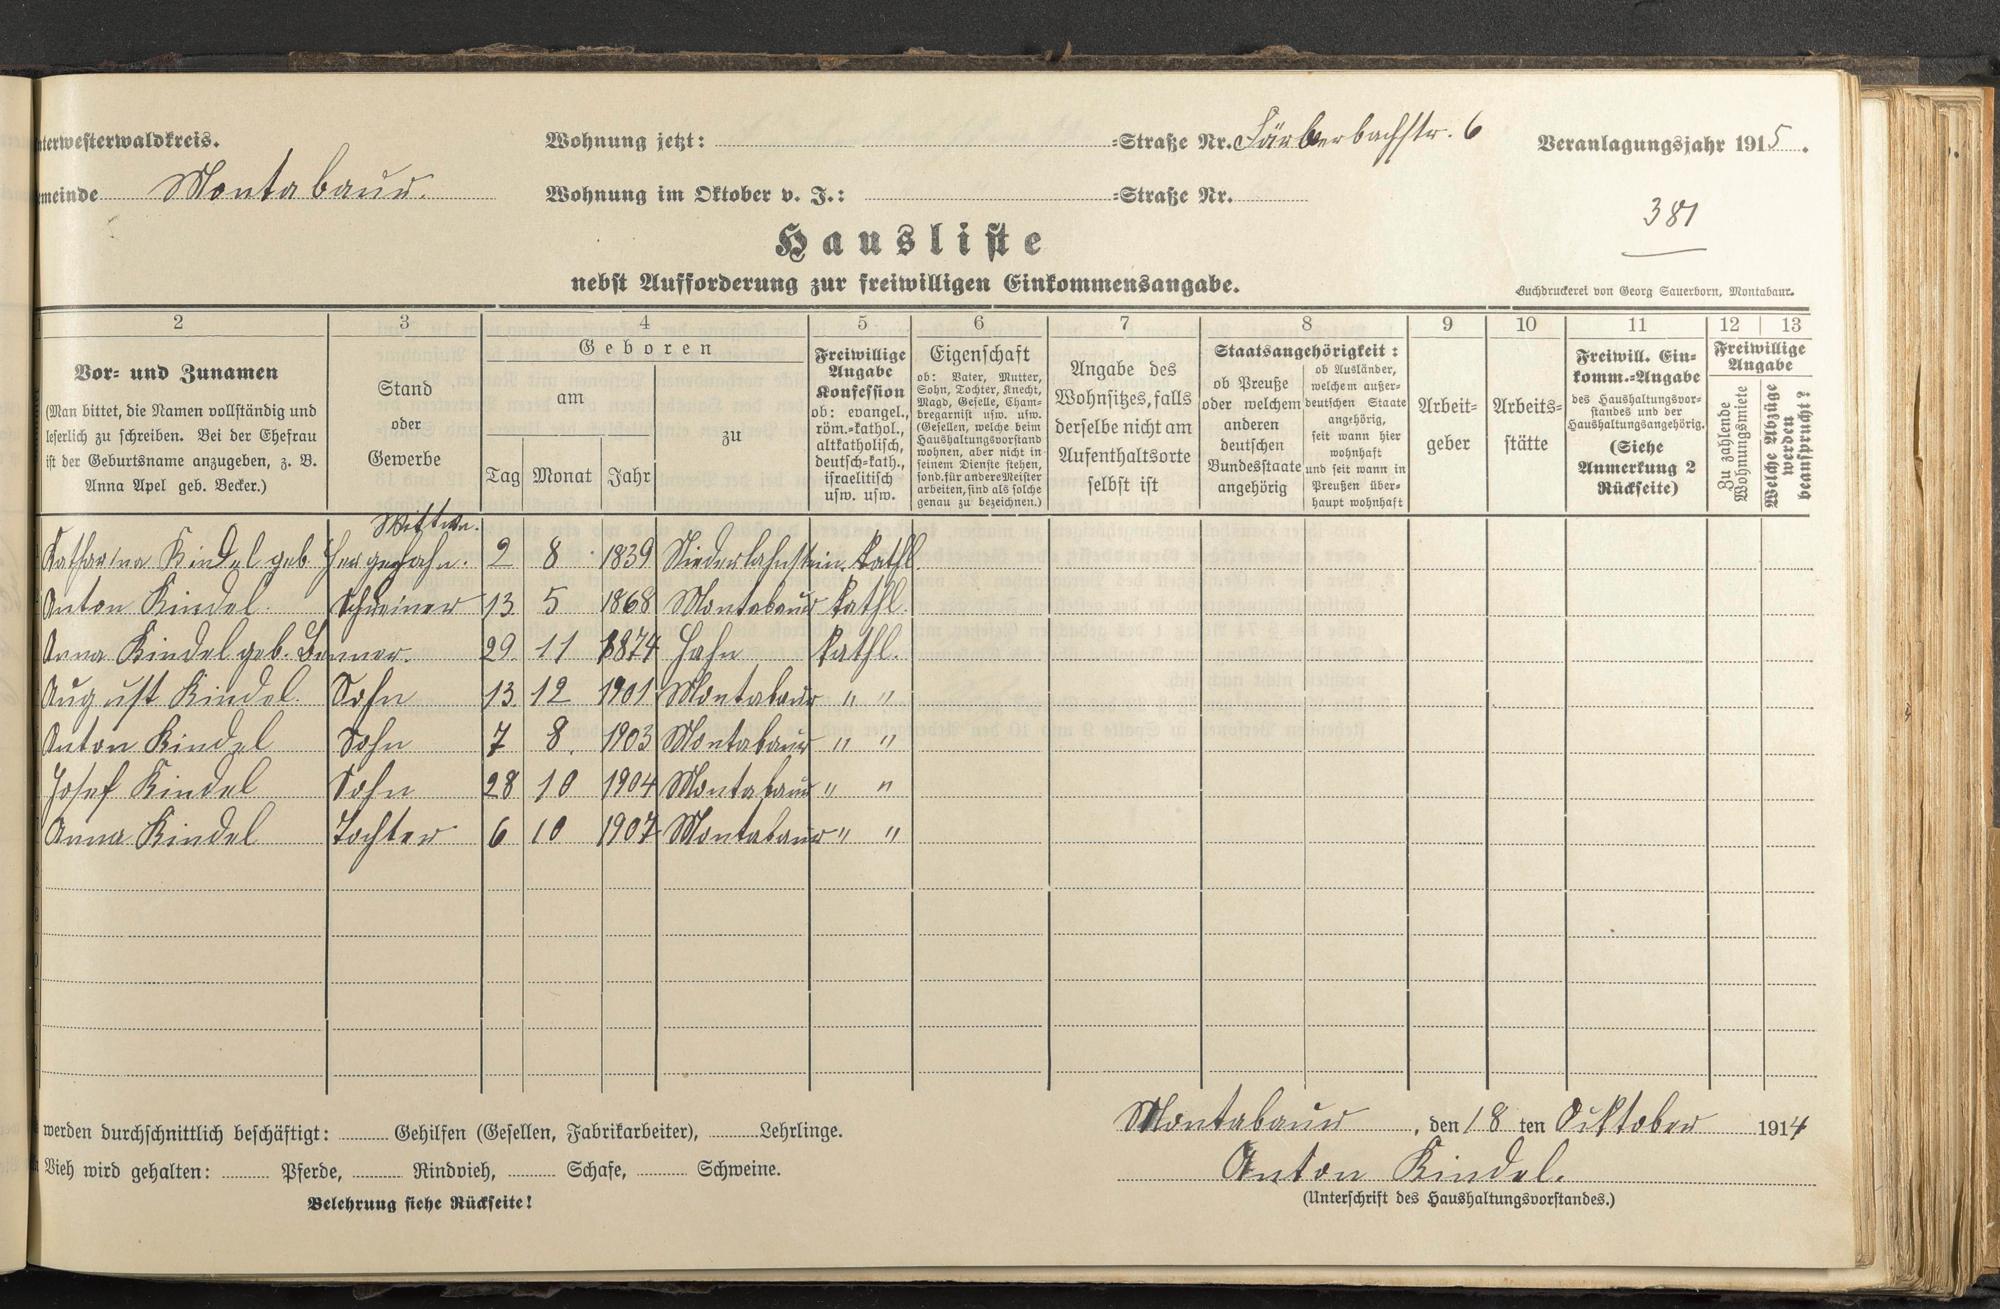 nterwesterwaldkreis.
Wohnung jetzt: =Straße Nr. Färberbachstr. 6
Veranlagungsjahr 1915.
meinde Montabaur.
Wohnung im Oktober v. J.: =Straße Nr.
381
Hausliste
nebst Aufforderung zur freiwilligen Einkommensangabe.
Buchdruckerei von Georg Sauerborn, Montabaur.
2 3 4 5 6 7 8 9 10 11 12 13
Vor= und Zunamen
(Man bittet, die Namen vollständig und
leserlich zu schreiben. Bei der Ehefrau
ist der Geburtsname anzugeben, z. B.
Anna Apel geb. Becker.)
Stand
oder
Gewerbe
Geboren
am
zu
Tag Monat Jahr
Freiwillige
Angabe
Konfession
ob: evangel.,
röm.=kathol.,
altkatholisch,
deutsch=kath.,
israelitisch
usw. usw.
Eigenschaft
ob: Vater, Mutter,
Sohn, Tochter, Knecht,
Magd, Geselle, Cham=
bregarnist usw. usw.
(Gesellen, welche beim
Haushaltungsvorstand
wohnen, aber nicht in
seinem Dienste stehen,
sond. für andere Meister
arbeiten, sind als solche
genau zu bezeichnen.)
Angabe des
Wohnsitzes, falls
derselbe nicht am
Aufenthaltsorte
selbst ist
Staatsangehörigkeit:
ob Preuße
oder welchem
anderen
deutschen
Bundesstaate
angehörig
ob Ausländer,
welchem außer=
deutschen Staate
angehörig,
seit wann hier
wohnhaft
und seit wann in
Preußen über=
haupt wohnhaft
Arbeit=
geber
Arbeits=
stätte
Freiwill. Ein=
komm.=Angabe
des Haushaltungsvor=
standes und der
Haushaltungsangehörig.
(Siehe
Anmerkung 2
Rückseite)
Freiwillige
Angabe
Zu zahlende
Wohnungsmiete
Welche Abzüge
werden
beansprucht?
Wittwe.
Katharina Kindel geb. Hergenhahn. 2 8 1839 Niederlahnstein. kathl.
Anton Kindel. Schreiner 13 5 1868 Montabaur kathl.
Anna Kindel geb. Benner. 29. 11 1874 Hahn kathl.
August Kindel. Sohn 13 12 1901 Montabaur " "
Anton Kindel Sohn 7 8. 1903 Montabaur " "
Josef Kindel Sohn 28 10 1904 Montabaur " "
Anna Kindel Tochter 6 10 1907 Montabaur " "
werden durchschnittlich beschäftigt: Gehilfen (Gesellen, Fabrikarbeiter), Lehrlinge.
Montabaur, den 18 ten Ocktober 1914
Vieh wird gehalten: Pferde, Rindvieh, Schafe, Schweine.
Anton Kindel.
Belehrung siehe Rückseite!
(Unterschrift des Haushaltungsvorstandes.)